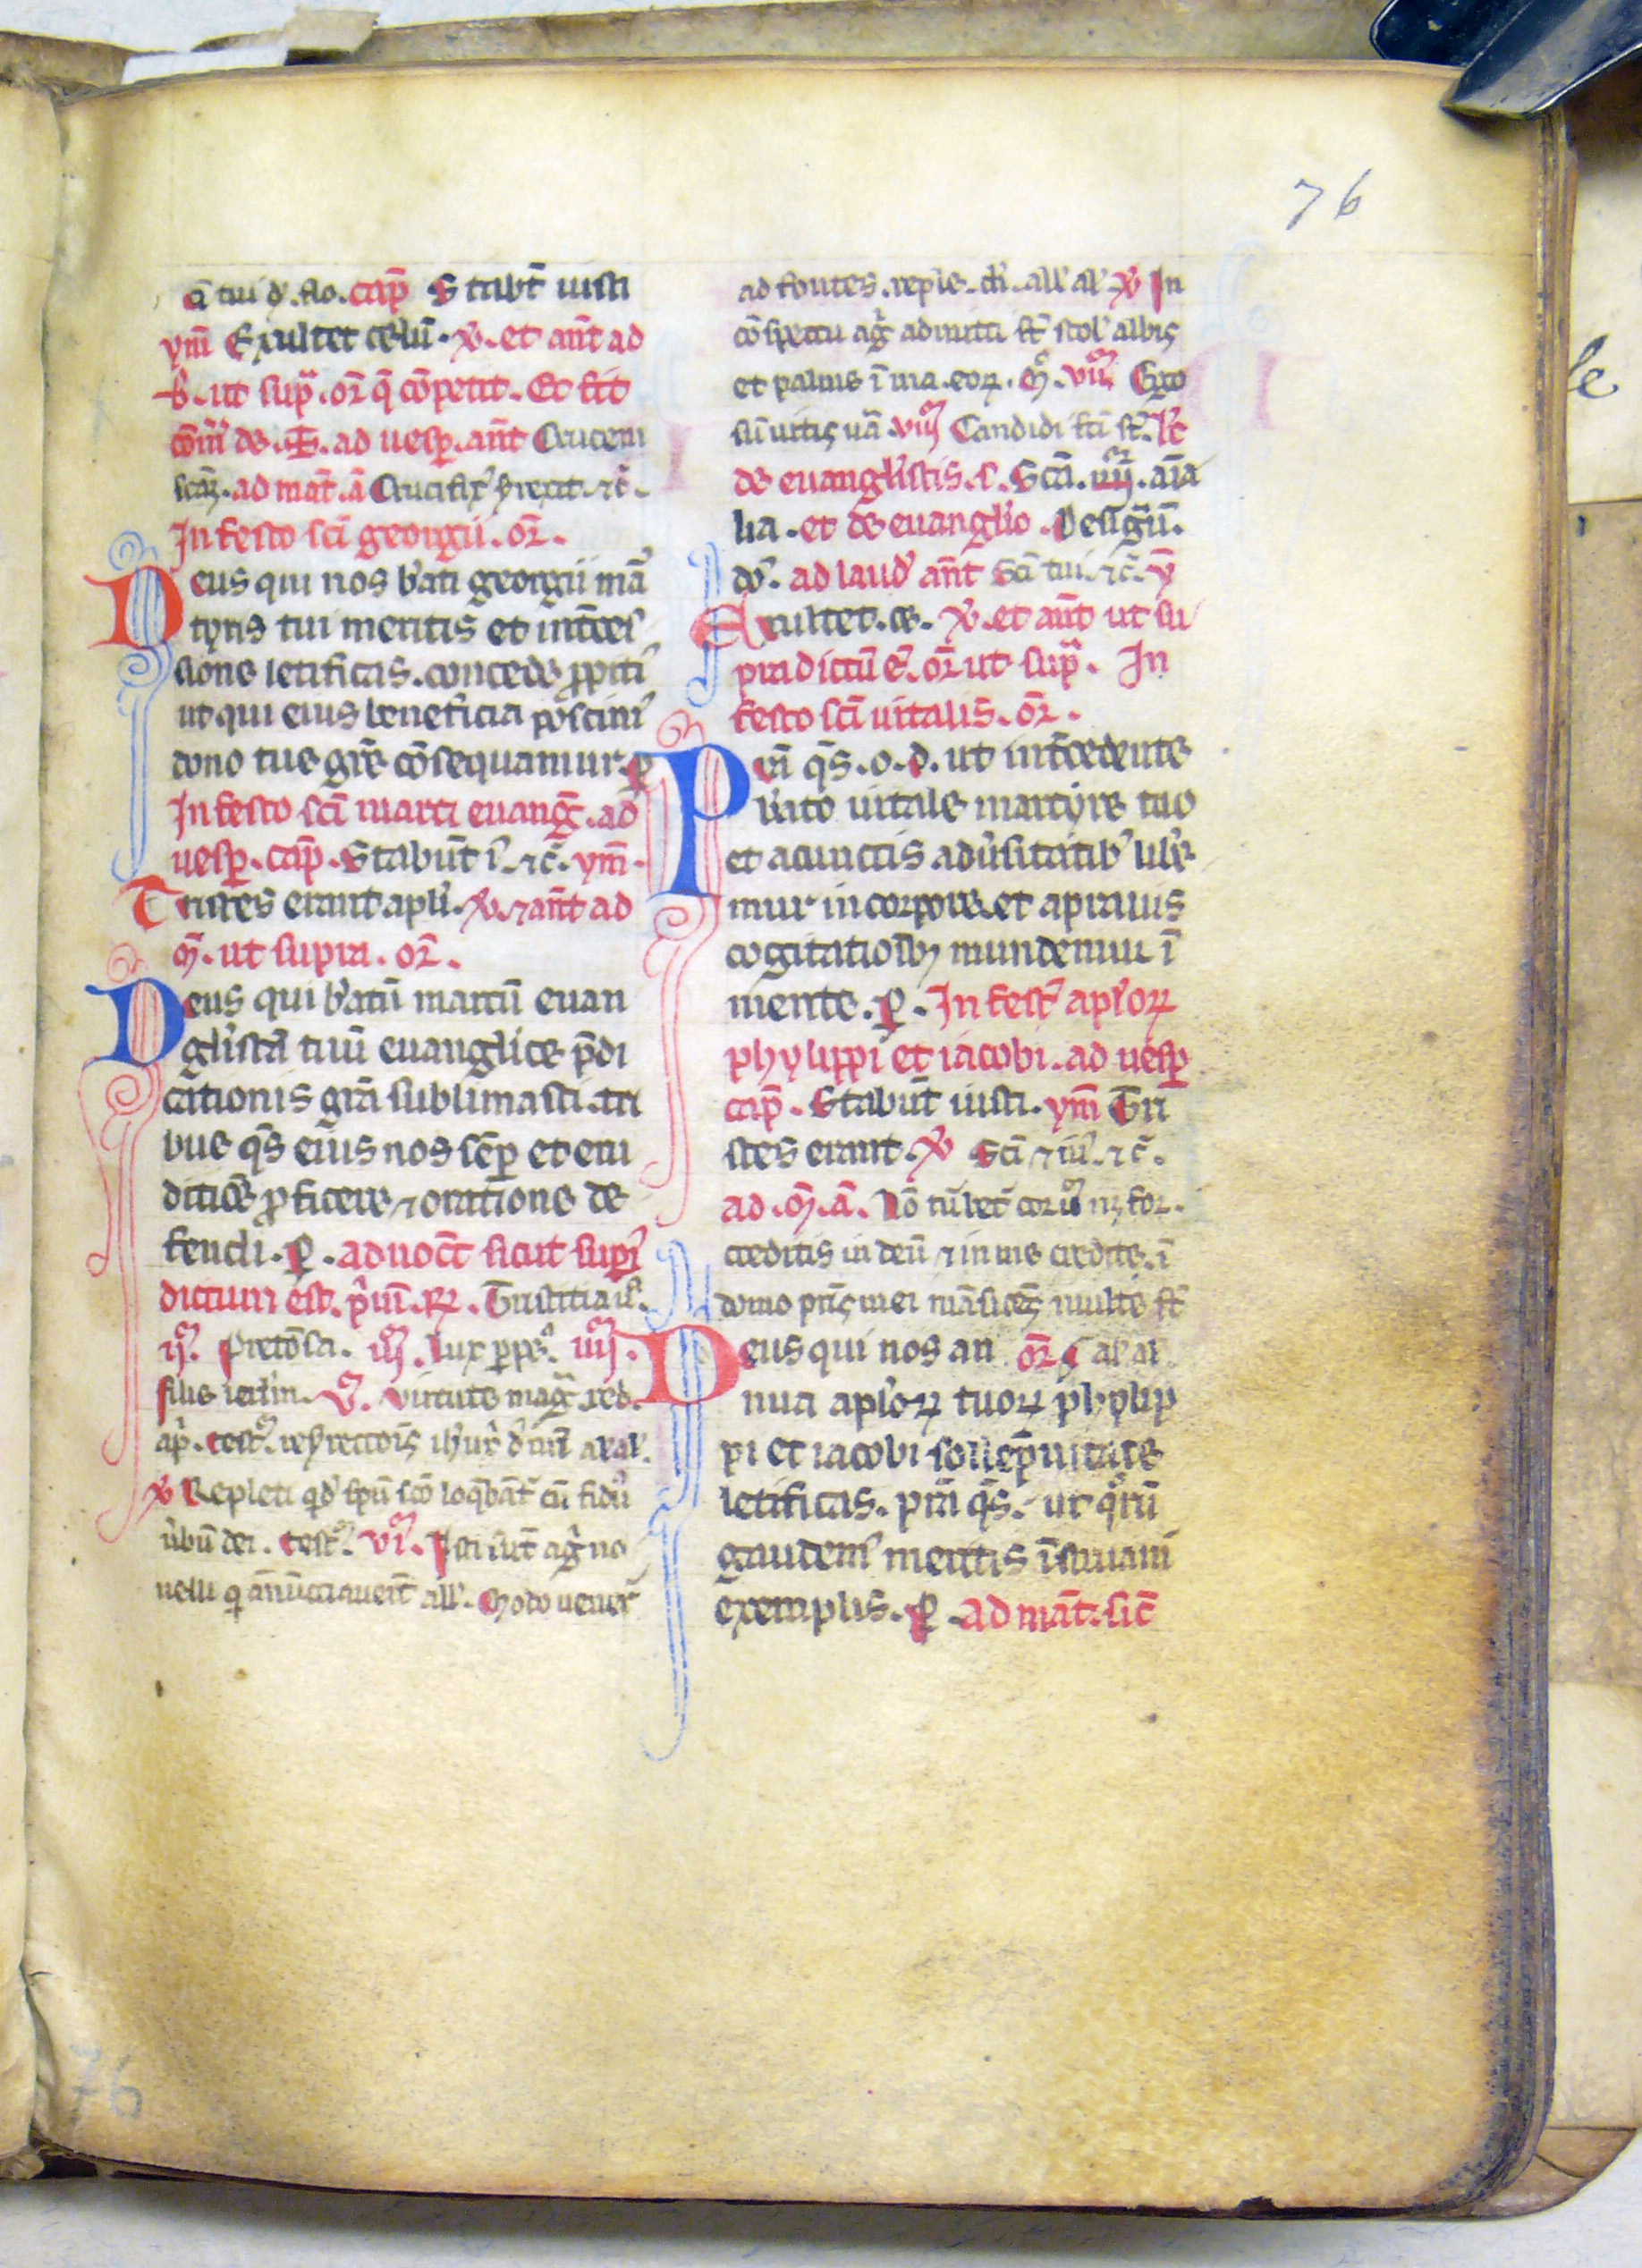 76
cā tui d. flo. cap̄ Stabt̄ iusti
ym̄ Exultet celū. v. et an̄t ad
b. ut sup̄. or̄ q̄ cōpetit. Et fit
cōm̄ de. ad uesp̄. an̄t Crucem
scāz. ad mat̄. ā Crucifix' s'rexit. ⁊c̄.
In festo sc̄i georgii. or̄.
Deus qui nos b'ati georgii mā
tyris tui meritis et int̄ces
sione letificas. concede ꝓpiti'
ut qui eius beneficia poscim'
dono tue gr̄e cōsequamur. p̄
In festo sc̄i marci euanḡ. ad
uesp̄. cap̄. Stabūt i. ⁊c̄. ym̄.
Tristes erant apl'i. v. ⁊ an̄t ad
m̄. ut supra. or̄.
Deus qui b'atū marcū euan
gl'istā tuū euanglice p̄di
cationis grā sublimasti. tri
bue q̄s eius nos sēp et eru
ditiōe ꝓficere ⁊ oratione de
fendi. p̄. ad noct̄ sicut supra
dictum est. p̄m̄. ꝶ. Tristitia
ij. Pretōsa. iij. Lux ꝑpe. iiij.
filie ierl'm. v. Virtute mag̃. red.
ap̄. test'. res'rectōīs ih'u al'al'.
v Repleti qd' sp̄u sc̄o loq̄bāt' cū fidu
ūbū dei. test'. vi. Isti sūt aḡ no
uelli q̄ ānūtiauer̄t all'. Modo uener̄
ad fontes. reple. cl'i. all' al' v In
cōspectu aḡ amicti st̄ stol' albis
et palme ī ma. eoꝝ. m̄. vii. Ego
sū uitis uā. viij Candidi fci st̄. l'c
de euangl'istis. s. Sc̄a. iiij. aīa
lia. et de euanglio. Desigū.
do. ad laud' an̄t Sc̄i tui. ⁊c̄. y
Exultet. ce. v. et an̄t ut su
pradictū ē. or̄ ut sup̄. In
festo sc̄i uitalis. or̄.
Prā q̄s. o. d. ut int̄cedente
b'ato uitale martyre tuo
et a cunctis adu'sitatib' lib'e
mur in corpore. et a prauis
cogitatioīb; mundemur ī
mente. p̄. In fest' apl'oꝝ
phylippi et iacobi. ad uesp̄
cap̄. Stabūt iusti. ym̄ Tri
stes erant. v Sc̄i ⁊ iu'. ⁊c̄.
ad. m̄. ā. Nō tu'bet' cor ur̄m nꝫ for.
creditis in deū ⁊ in me credite. ī
domo pr̄is mei māsiōēs multe st̄
Deus qui nos an or̄ al'al'
nua apl'oꝝ tuoꝝ phylip
pi et iacobi sollēpnitate
letificas. prā q̄s. ut q̄rū
gaudem' meritis īstruam'
exemplis. p̄. ad mat̄. sic̄
76